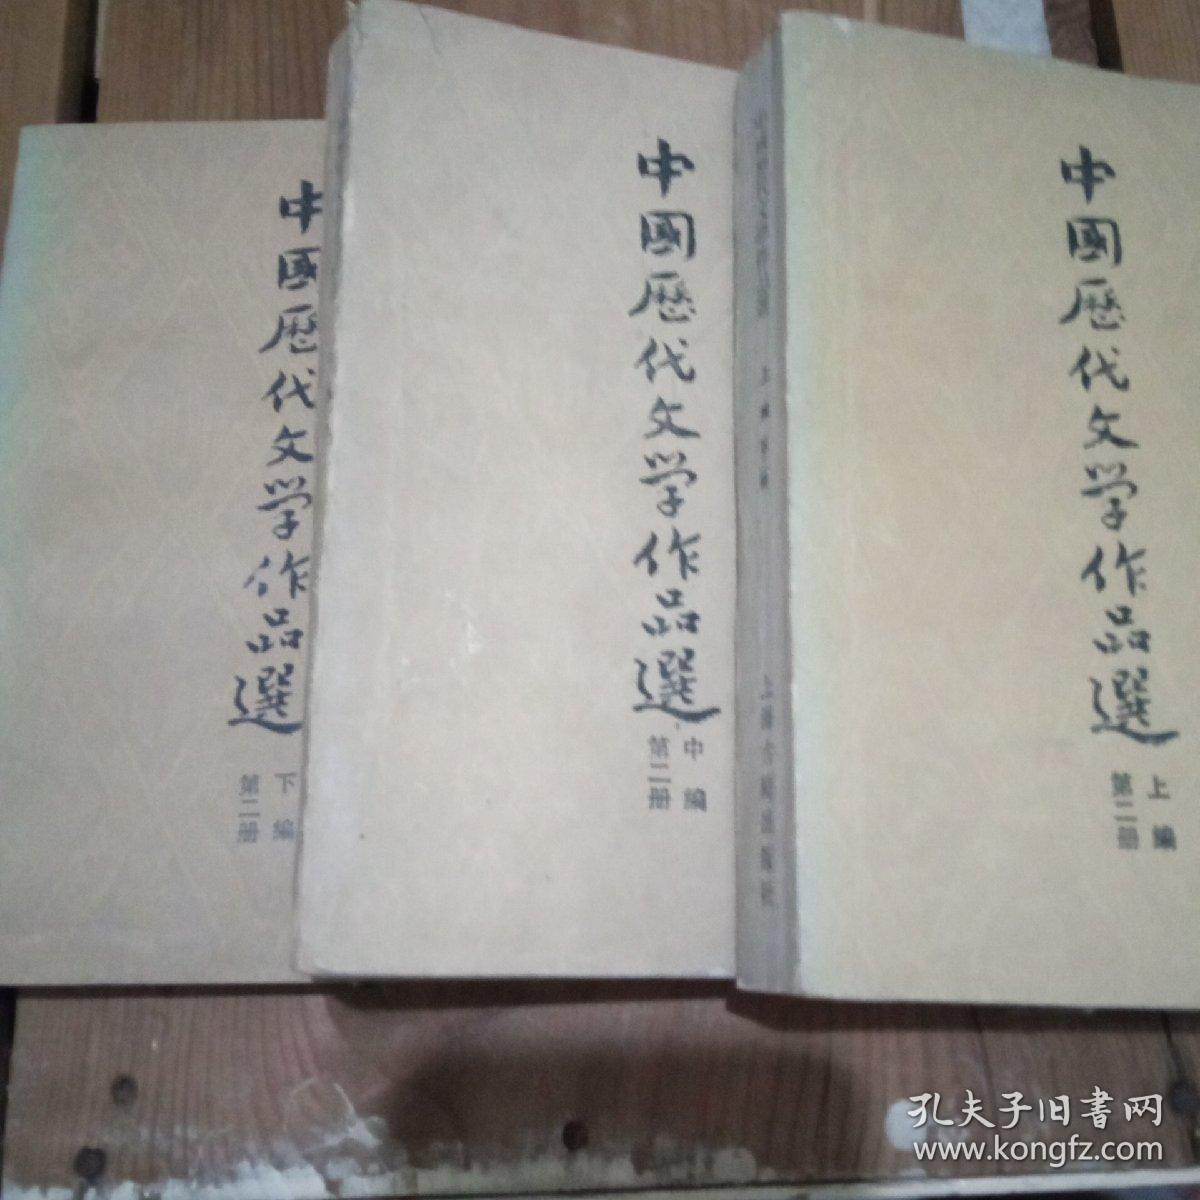 中國歷代文学作品選
上編
第二册
中國歷代文学作品選
中編
第二册
中國歷代文学作品選
下編
第二册
上海古籍出版社
孔夫子旧書网
www.kongfz.com